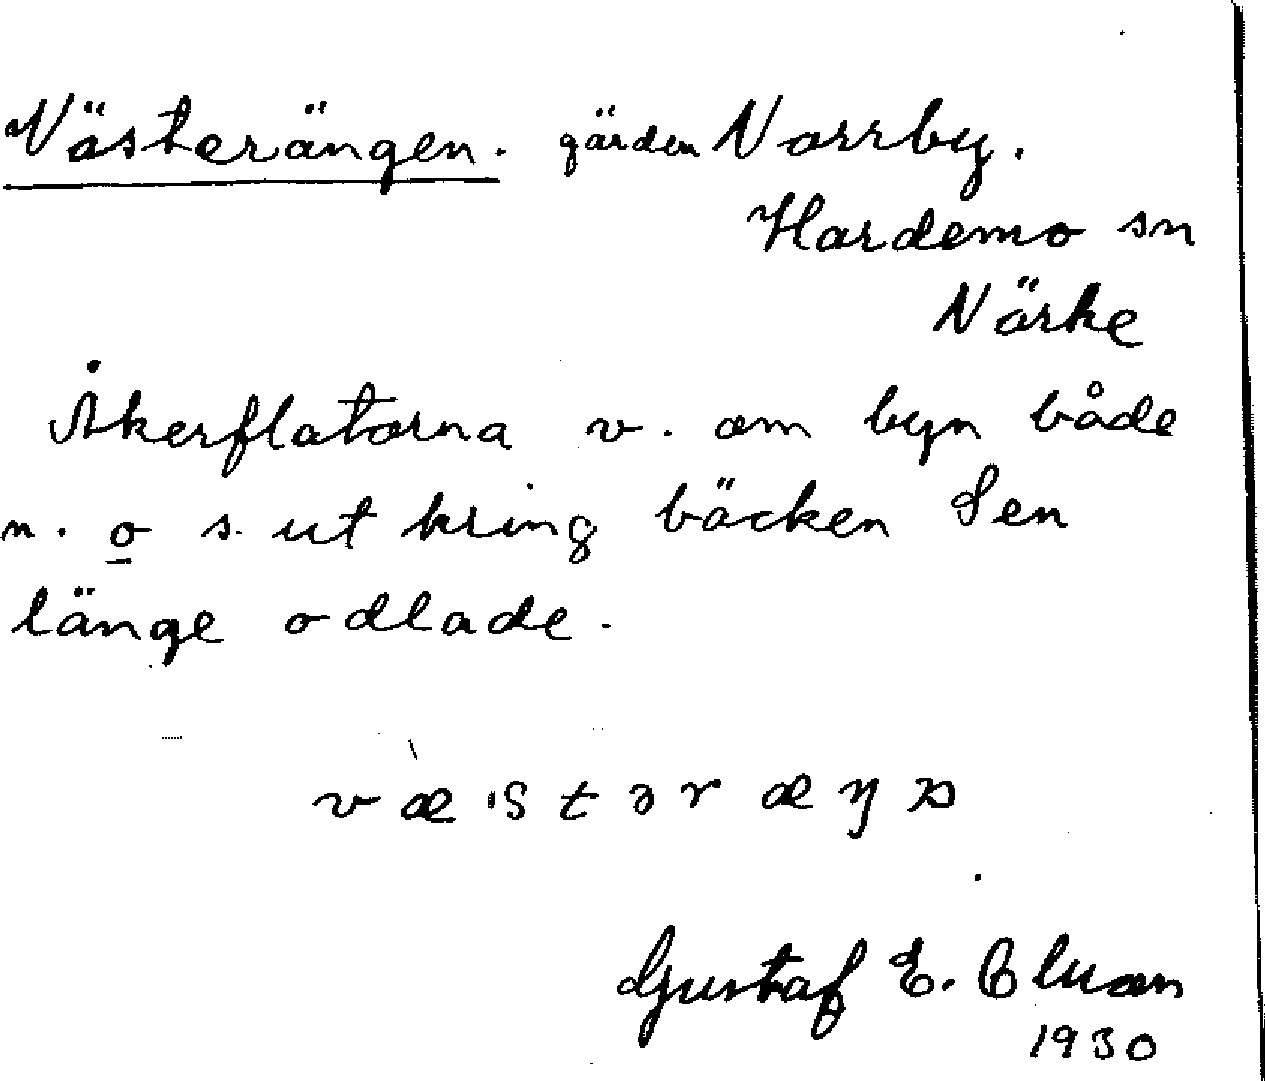 Västerängen. gärden Norrby.
Hardemo sn
Närke
Åkerflatorna v. om byn både
n. o s. ut kring bäcken Sen
länge odlade.
Gustaf E.
1930